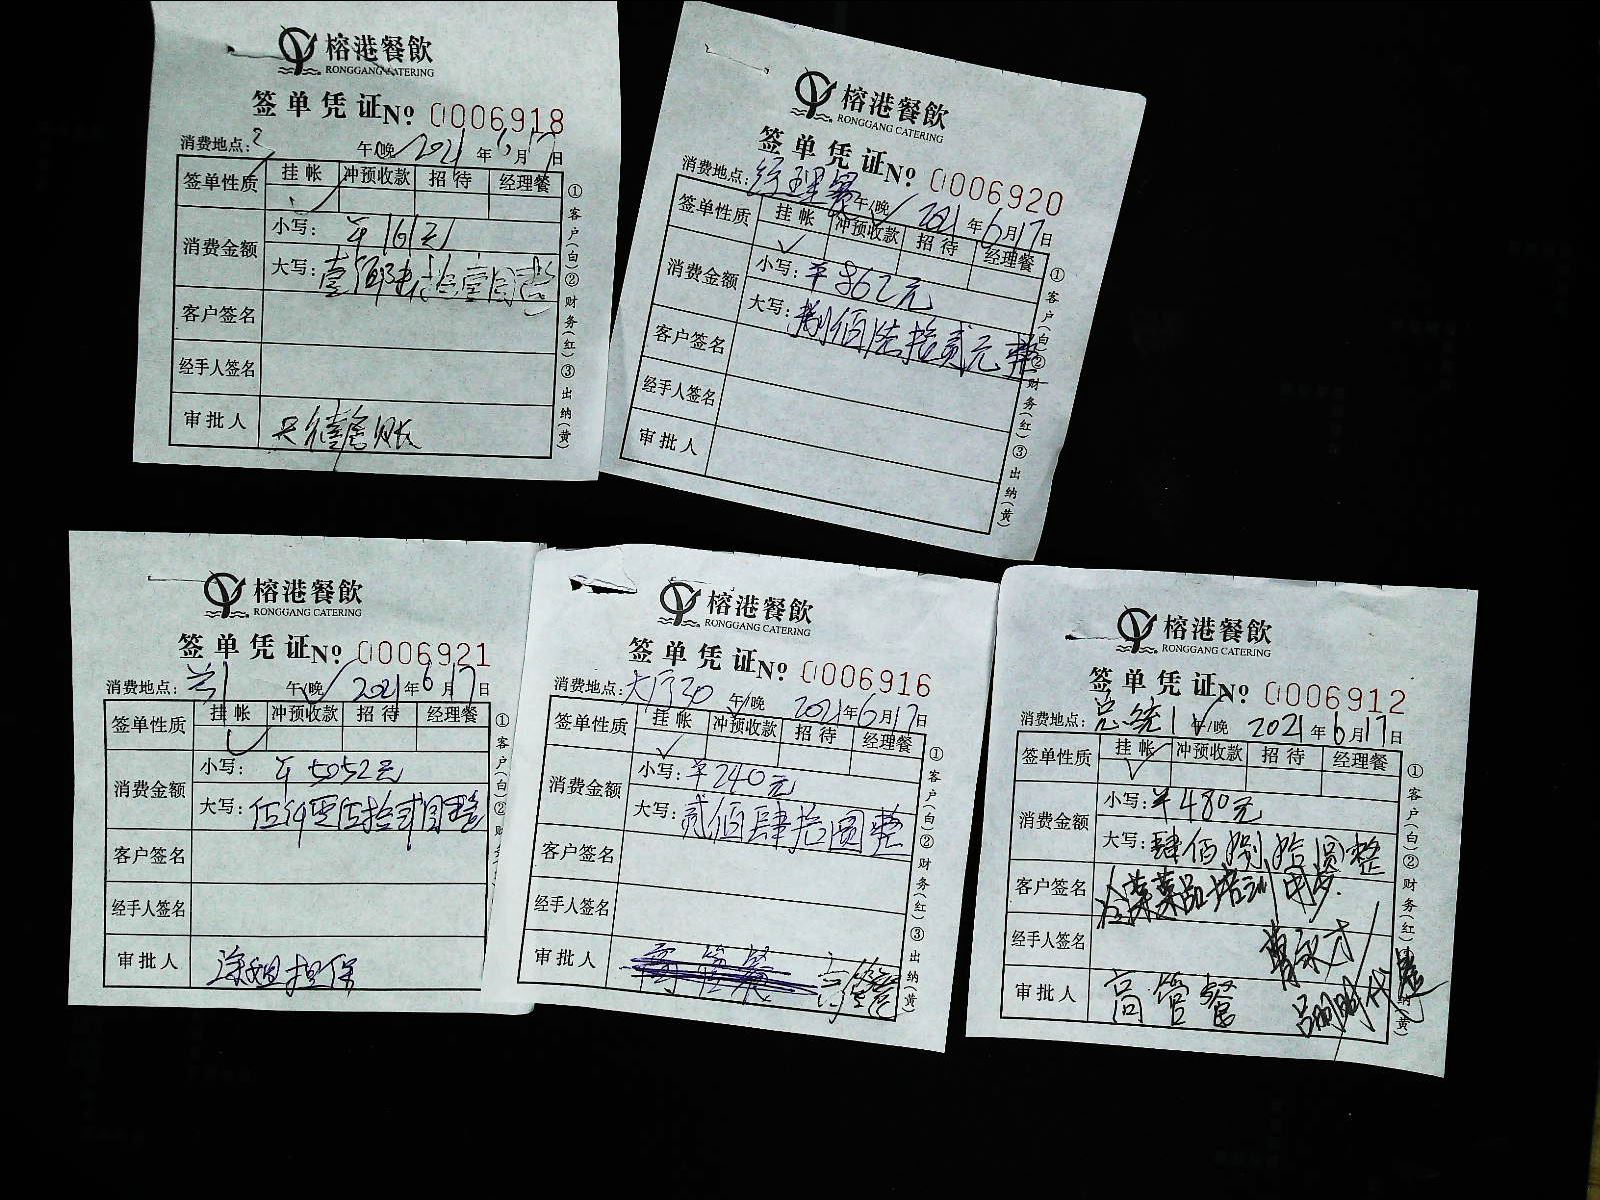 榕港餐飲
RONGGANG CATERING
签单凭证 No 0006918
消费地点: 午/晚 2021年6月17日
签单性质 挂帐 冲预收款 招待 经理餐
消费金额 小写: ¥161元
大写: 壹佰陆拾壹圆整
客户签名
经手人签名
审批人
①客户(白)②财务(红)③出纳(黄)
榕港餐飲
RONGGANG CATERING
签单凭证 No 0006920
消费地点: 经理餐 午/晚 2021年6月17日
签单性质 挂帐 冲预收款 招待 经理餐
消费金额 小写: ¥862元
大写: 捌佰陆拾贰元整
客户签名
经手人签名
审批人
①客户(白)②财务(红)③出纳(黄)
榕港餐飲
RONGGANG CATERING
签单凭证 No 0006921
消费地点: 兰1 午/晚 2021年6月17日
签单性质 挂帐 冲预收款 招待 经理餐
消费金额 小写: ¥5052元
大写: 伍仟零伍拾贰圆整
客户签名
经手人签名
审批人 涂姐担保
①客户(白)②财务
榕港餐飲
RONGGANG CATERING
签单凭证 No 0006916
消费地点: 大厅30 午/晚 2021年6月17日
签单性质 挂帐 冲预收款 招待 经理餐
消费金额 小写: ¥240元
大写: 贰佰肆拾圆整
客户签名
经手人签名
审批人 高管餐
①客户(白)②财务(红)③出纳(黄)
榕港餐飲
RONGGANG CATERING
签单凭证 No 0006912
消费地点: 总统1 午/晚 2021年6月17日
签单性质 挂帐 冲预收款 招待 经理餐
消费金额 小写: ¥480元
大写: 肆佰捌拾圆整
客户签名 菜品培训用餐
经手人签名
审批人 高管餐
①客户(白)②财务(红)③出纳(黄)